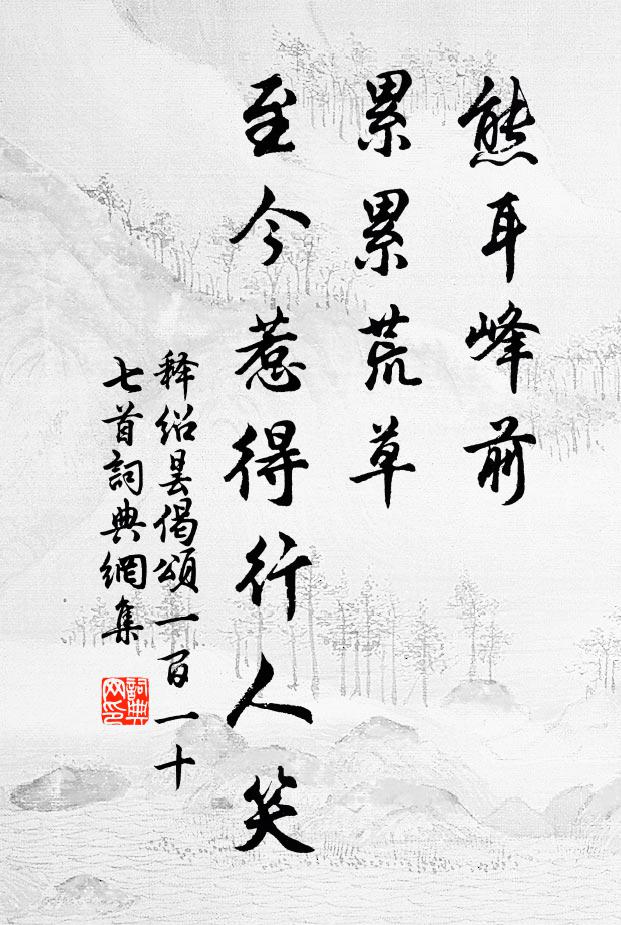 熊耳峰前
累累荒草
至今惹得行人笑
释绍昙偈頌一百一十
七首詞典網集
詞典
网印